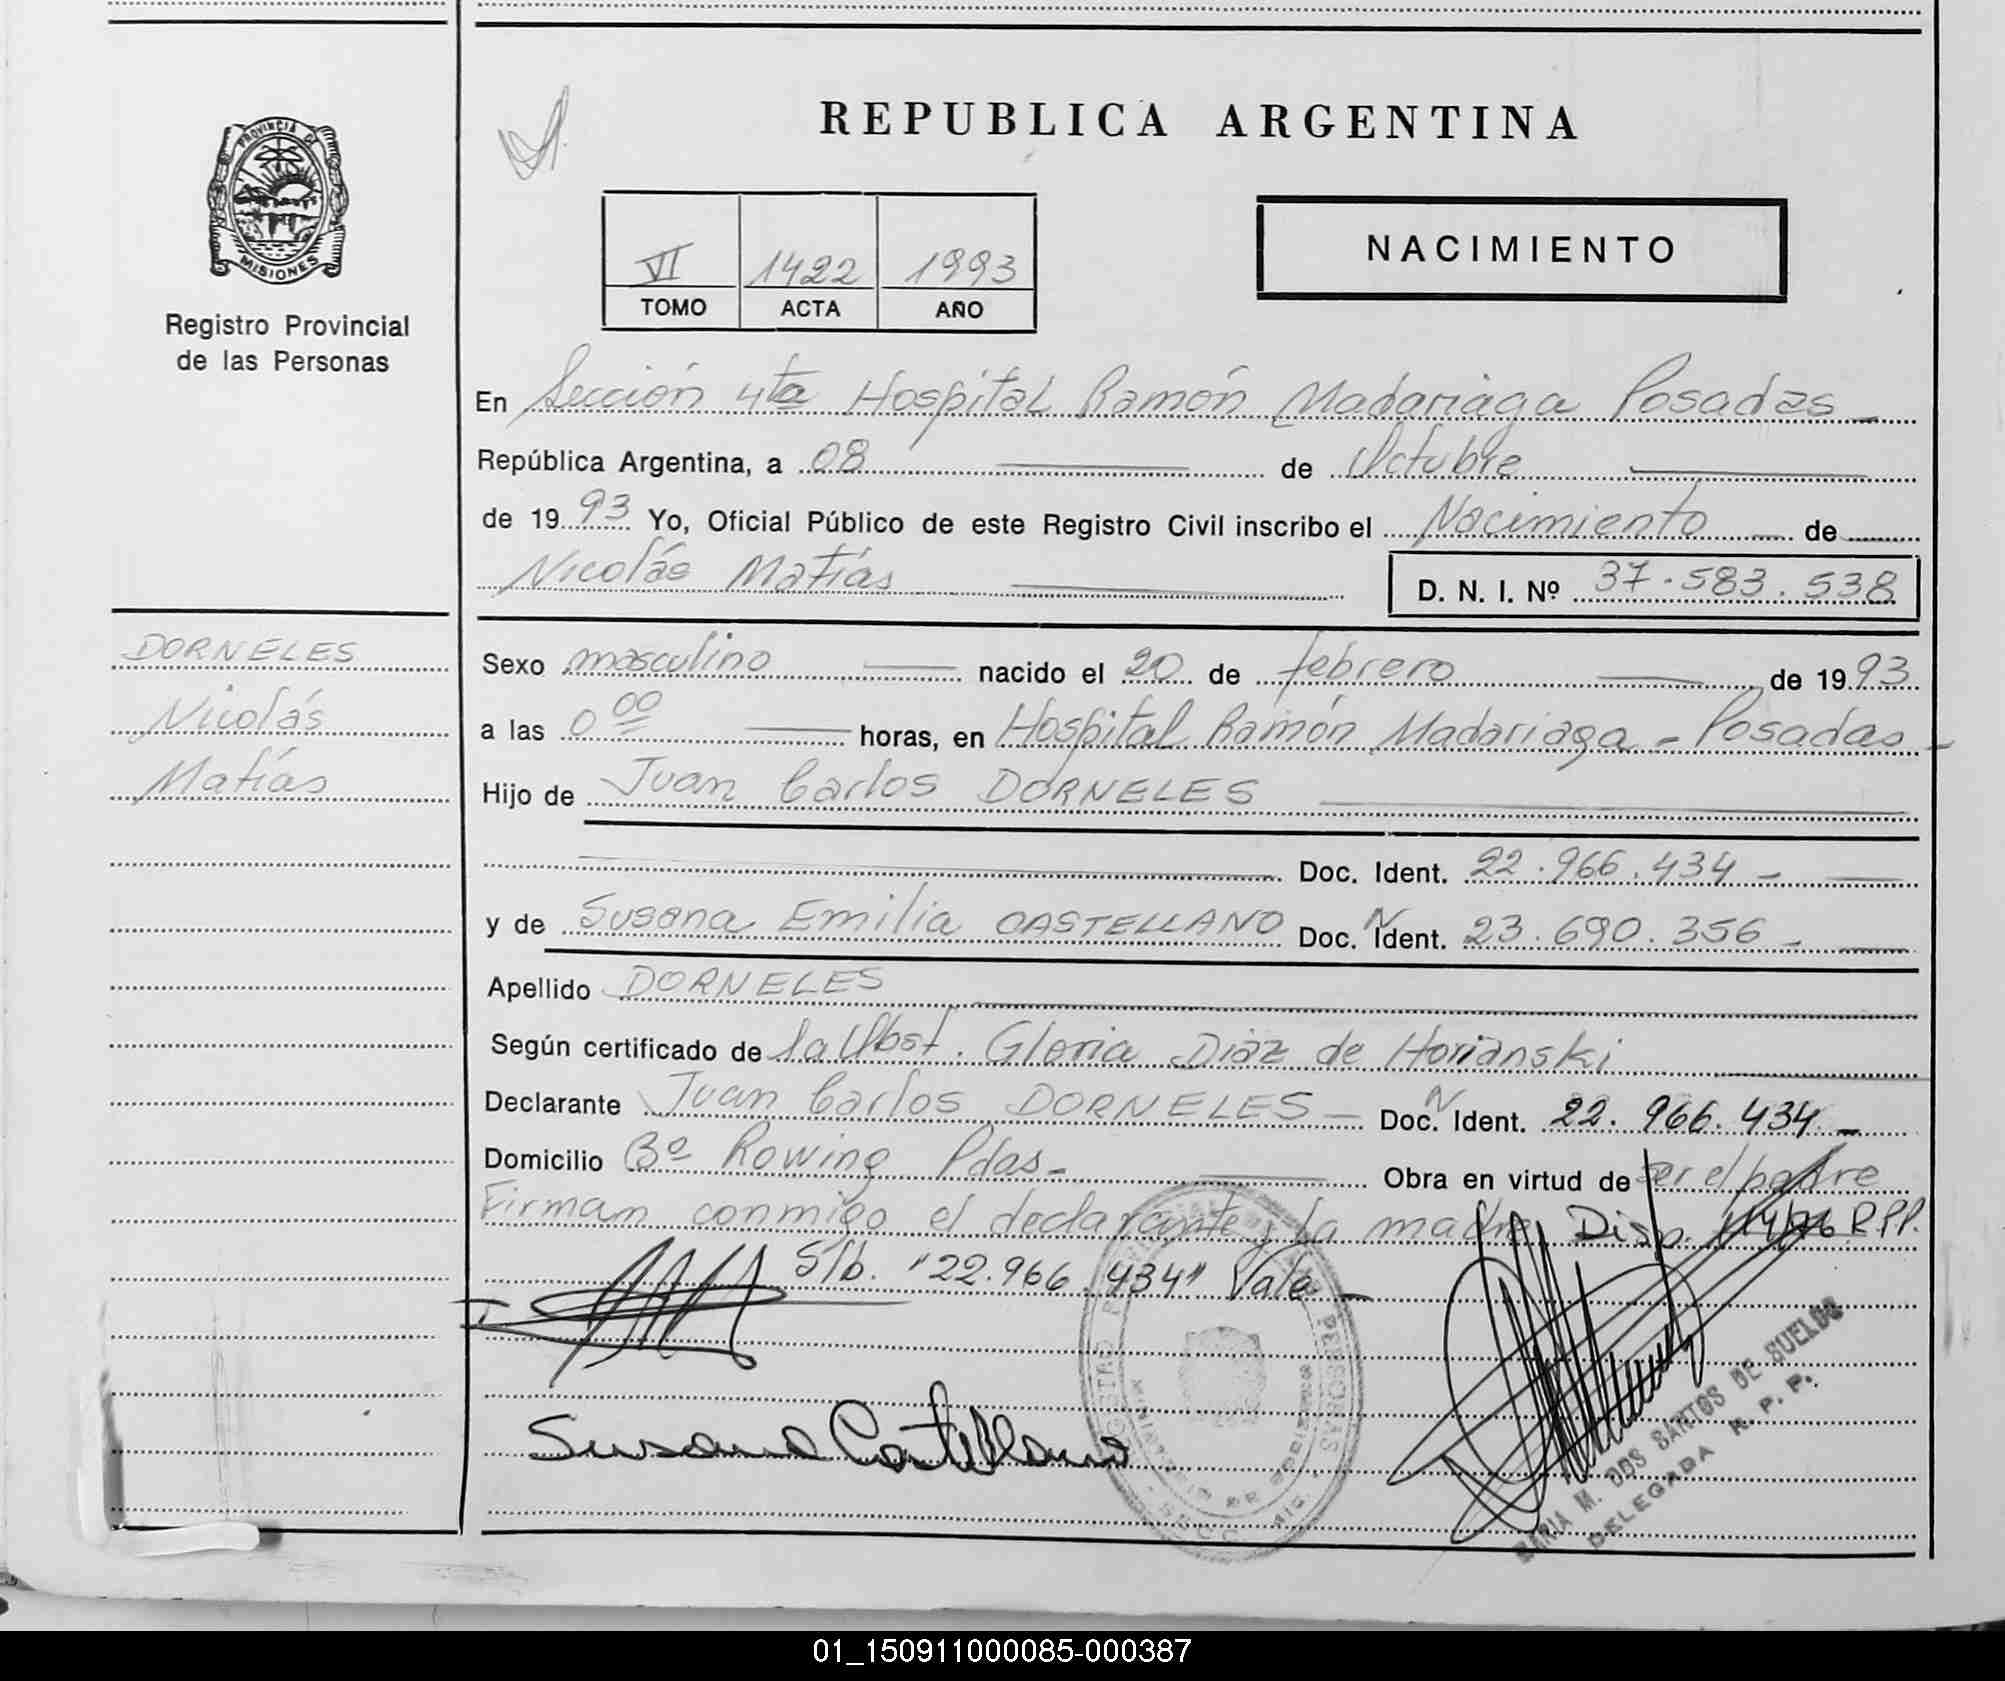 REPUBLICA ARGENTINA
PROVINCIA DE
MISIONES
Registro Provincial
de las Personas
VI 1422 1993
TOMO ACTA AÑO
NACIMIENTO
En Sección 4ta Hospital Ramón Madariaga Posadas
República Argentina, a 08 de Octubre
de 1993 Yo, Oficial Público de este Registro Civil inscribo el Nacimiento de
Nicolás Matías D. N. I. Nº 37.583.538
DORNELES
Nicolás
Matías
Sexo masculino nacido el 20 de febrero de 1993
a las 0 00 horas, en Hospital Ramón Madariaga - Posadas -
Hijo de Juan Carlos DORNELES
Doc. Ident. 22.966.434 -
y de Susana Emilia CASTELLANO Doc. N Ident. 23.690.356 -
Apellido DORNELES
Según certificado de la Obst. Gloria Diaz de Horianski
Declarante Juan Carlos DORNELES - Doc. N Ident. 22.966.434 -
Domicilio Bº Rowing Pdas - Obra en virtud de ser el padre
Firman conmigo el declarante y la madre Disp. R.P.P.
S/b. "22.966.434" Vale -
Susana Castellano
MARIA M. DOS SANTOS DE SUELDO
DELEGADA R. P. P.
01_150911000085-000387